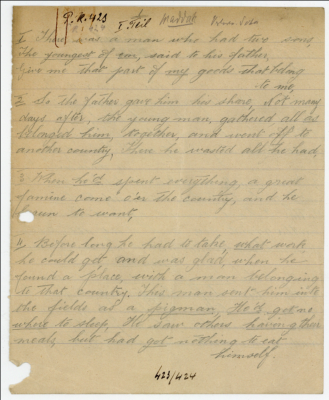 P.K. 423
424
I Teil
1 There was a man who had two sons,
The youngest of em, said to his father,
Give me that part of my goods that belong
to me,
2 So the father gave him his share, Not many
days after, the young man, gathered all as
belonged him, together, and went off to
another country, There he wasted all he had,
3 When he'd spent everything, a great
famine come o'er the country, and he
begun to want,
4 Before long he had to take, what work
he could get, and was glad, when he
found a place, with a man belonging
to that country. This man sent him into
the fields as a pigman, He'd got no
where to sleep, He saw others having their
meals, but had got nothing to eat
himself.
423/424